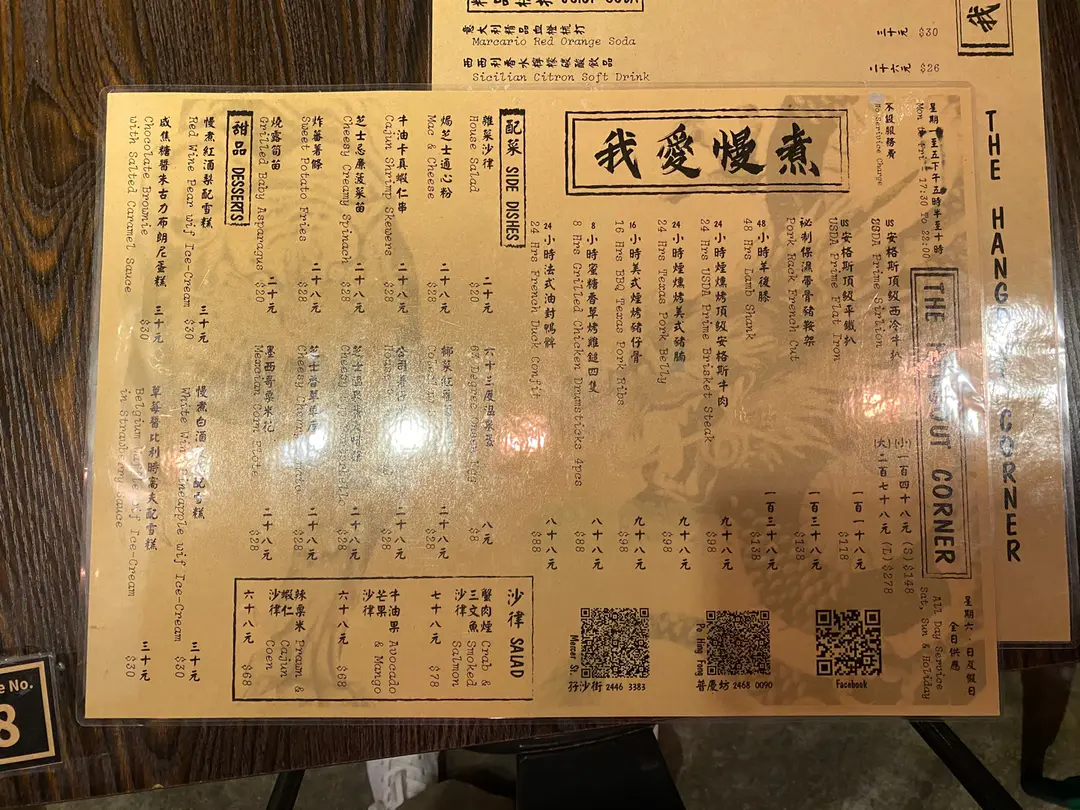 意大利精品血橙梳打 三十元 $30
Marcario Red Orange Soda
西西利香水檸檬碳酸飲品 二十六元 $26
Sicilian Citron Soft Drink
我
THE HANG
CORNER
星期一至五下午五時半至十時
17:30 To 22:00
THE
UT CORNER
星期六、日及假日
全日供應
All Day Service
Sat, Sun & Holiday
不設服務費
No Serivice Charge
我愛慢煮
US 安格斯頂級西冷牛扒 (小)一百四十八元 (S) $148
USDA Prime Sirloin (L) $278
US 安格斯頂級平鐵扒 一百一十八元
USDA Prime Flat Iron $118
秘制保濕帶骨豬鞍架 一百三十八元
Pork Rack French Cut $138
48 小時羊後膝 一百三十八元
48 Hrs Lamb Shank $138
24 小時煙燻烤頂級安格斯牛肉 九十八元
24 Hrs USDA Prime Brisket Steak $98
24 小時煙燻烤美式豬腩 九十八元
24 Hrs Texas Pork Belly $98
16 小時美式煙烤豬仔骨 九十八元
16 Hrs BBQ Texas Pork Ribs $98
8 小時蜜糖香草烤雞鎚四隻 八十八元
8 Hrs Grilled Chicken Drumsticks 4pcs $88
24 小時法式油封鴨髀 八十八元
24 Hrs French Duck Confit $88
Facebook
普慶坊 2468 0090
Po Hing Fong
孖沙街 2446 3383
Mercer St.
配菜 SIDE DISHES
雜菜沙律 二十元
House Salad $20
焗芝士通心粉 二十八元
Mac & Cheese $28
牛油卡真蝦仁串 二十八元
Cajun Shrimp Skewers $28
芝士忌廉菠菜苗 二十八元
Cheesy Creamy Spinach $28
炸蕃薯條 二十八元
Sweet Potato Fries $28
燒露筍苗 二十元
Grilled Baby Asparagus $20
六十三度溫泉蛋 八元
$8
二十八元
$28
二十八元
$28
二十八元
$28
二十八元
$28
墨西哥粟米 二十八元
Mexican Corn $28
沙律 SALAD
蟹肉煙三文魚沙律 七十八元
Crab & Smoked Salmon $78
牛油果芒果沙律 六十八元
Avocado & Mango $68
辣粟米蝦仁沙律 六十八元
Prawn & Cajun Coen $68
甜品 DESSERTS
慢煮紅酒梨配雪糕 三十元
Red Wine Pear wif Ice-Cream $30
咸焦糖醬朱古力布朗尼蛋糕 三十元
Chocolate Brownie $30
with Salted Caramel Sauce
慢煮白酒 配雪糕 三十元
White Wine Pineapple wif Ice-Cream $30
草莓醬比利時窩夫配雪糕 三十元
Belgium Waffle wif Ice-Cream $30
in Strawberry Sauce
e No.
8